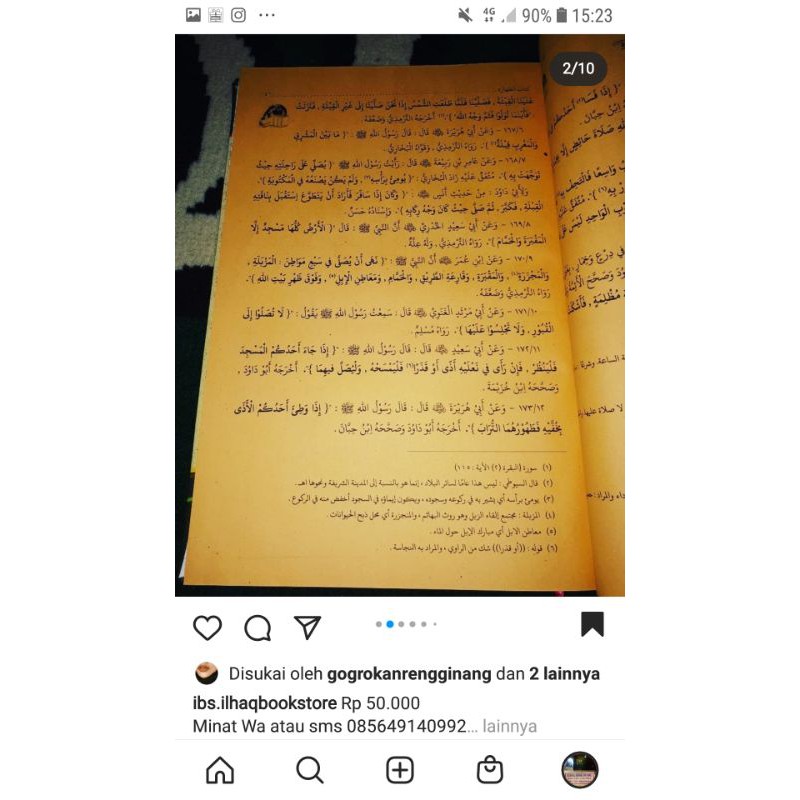 4G 90% 15:23
2/10
عَلَيْنَا الْقِبْلَةُ ، فَصَلَّيْنَا فَلَمَّا طَلَعَتِ الشَّمْسُ إِذَا نَحْنُ صَلَّيْنَا إِلَى غَيْرِ الْقِبْلَةِ ، فَنَزَلَتْ
﴿فَأَيْنَمَا تُوَلُّوا فَثَمَّ وَجْهُ اللهِ﴾(١) أَخْرَجَهُ التِّرْمِذِيُّ وَضَعَّفَهُ .
١٦٧/٦ - وَعَنْ أَبِي هُرَيْرَةَ ﷺ قَالَ : قَالَ رَسُولُ اللهِ ﷺ : «{ مَا بَيْنَ الْمَشْرِقِ
وَالْمَغْرِبِ قِبْلَةٌ(٢) }». رَوَاهُ التِّرْمِذِيُّ ، وَقَوَّاهُ الْبُخَارِيُّ .
١٦٨/٧ - وَعَنْ عَامِرِ بْنِ رَبِيعَةَ قَالَ : رَأَيْتُ رَسُولَ اللهِ ﷺ «{ يُصَلِّي عَلَى رَاحِلَتِهِ حَيْثُ
تَوَجَّهَتْ بِهِ }». مُتَّفَقٌ عَلَيْهِ زَادَ الْبُخَارِيُّ : «{ يُومِئُ بِرَأْسِهِ(٣) ، وَلَمْ يَكُنْ يَصْنَعُهُ فِي الْمَكْتُوبَةِ }».
وَلِأَبِي دَاوُدَ : مِنْ حَدِيثِ أَنَسٍ : «{ وَكَانَ إِذَا سَافَرَ فَأَرَادَ أَنْ يَتَطَوَّعَ اسْتَقْبَلَ بِنَاقَتِهِ
الْقِبْلَةَ ، فَكَبَّرَ ، ثُمَّ صَلَّى حَيْثُ كَانَ وَجْهُ رِكَابِهِ }». وَإِسْنَادُهُ حَسَنٌ .
١٦٩/٨ - وَعَنْ أَبِي سَعِيدٍ الْخُدْرِيِّ أَنَّ النَّبِيَّ ﷺ : قَالَ «{ الْأَرْضُ كُلُّهَا مَسْجِدٌ إِلَّا
الْمَقْبَرَةَ وَالْحَمَّامَ }». رَوَاهُ التِّرْمِذِيُّ ، وَلَهُ عِلَّةٌ .
١٧٠/٩ - وَعَنْ ابْنِ عُمَرَ أَنَّ النَّبِيَّ ﷺ : «{ نَهَى أَنْ يُصَلَّى فِي سَبْعِ مَوَاطِنَ : الْمَزْبَلَةِ ،
وَالْمَجْزَرَةِ(٤) ، وَالْمَقْبَرَةِ ، وَقَارِعَةِ الطَّرِيقِ ، وَالْحَمَّامِ ، وَمَعَاطِنِ الْإِبِلِ(٥) ، وَفَوْقَ ظَهْرِ بَيْتِ اللهِ }».
رَوَاهُ التِّرْمِذِيُّ وَضَعَّفَهُ .
١٧١/١٠ - وَعَنْ أَبِي مَرْثَدٍ الْغَنَوِيِّ قَالَ : سَمِعْتُ رَسُولَ اللهِ ﷺ يَقُولُ : «{ لَا تُصَلُّوا إِلَى
الْقُبُورِ ، وَلَا تَجْلِسُوا عَلَيْهَا }». رَوَاهُ مُسْلِمٌ .
١٧٢/١١ - وَعَنْ أَبِي سَعِيدٍ قَالَ : قَالَ رَسُولُ اللهِ ﷺ : «{ إِذَا جَاءَ أَحَدُكُمُ الْمَسْجِدَ
فَلْيَنْظُرْ ، فَإِنْ رَأَى فِي نَعْلَيْهِ أَذًى أَوْ قَذَرًا(٦) فَلْيَمْسَحْهُ ، وَلْيُصَلِّ فِيهِمَا }». أَخْرَجَهُ أَبُو دَاوُدَ ،
وَصَحَّحَهُ ابْنُ خُزَيْمَةَ .
١٧٣/١٢ - وَعَنْ أَبِي هُرَيْرَةَ قَالَ : قَالَ رَسُولُ اللهِ ﷺ : «{ إِذَا وَطِئَ أَحَدُكُمُ الْأَذَى
بِخُفَّيْهِ فَطَهُورُهُمَا التُّرَابُ }». أَخْرَجَهُ أَبُو دَاوُدَ وَصَحَّحَهُ ابْنُ حِبَّانَ .
(١) سورة (البقرة (٢) الآية : ١١٥)
(٢) قال السيوطي : ليس هذا عامًا لسائر البلاد ، إنما هو بالنسبة إلى المدينة الشريفة ونحوها اهـ.
(٣) يومئ برأسه أي يشير به في ركوعه وسجوده ، ويكون إيماؤه في السجود أخفض منه في الركوع .
(٤) المزبلة : مجتمع إلقاء الزبل وهو روث البهائم ، والمجزرة أي محل ذبح الحيوانات .
(٥) معاطن الابل أي مبارك الإبل حول الماء .
(٦) قوله : ((أو قذرا)) شك من الراوي ، والمراد به النجاسة .
Disukai oleh gogrokanrengginang dan 2 lainnya
ibs.ilhaqbookstore Rp 50.000
Minat Wa atau sms 085649140992... lainnya